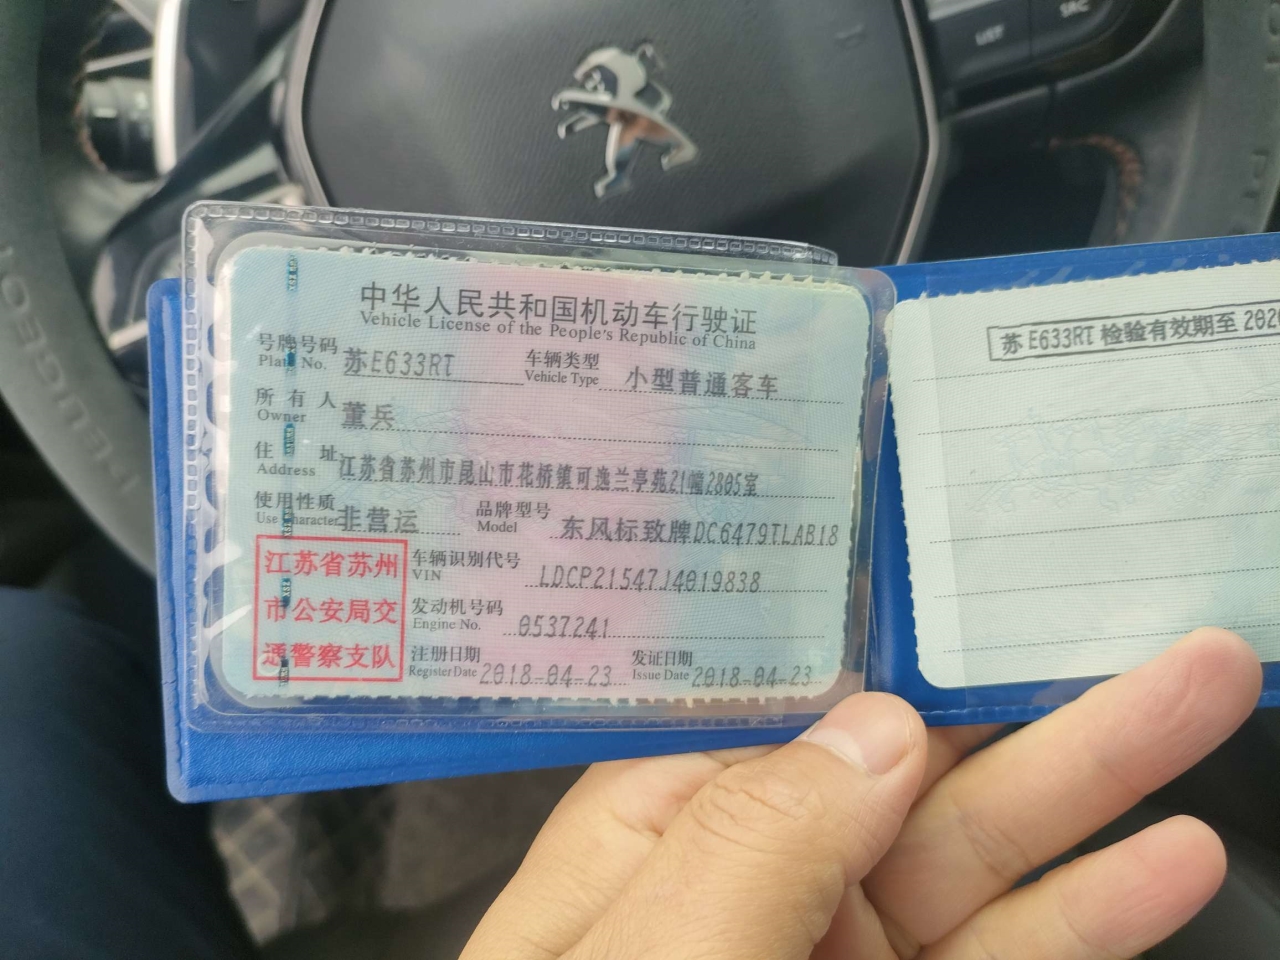 中华人民共和国机动车行驶证
Vehicle License of the People's Republic of China
号牌号码 苏E633RT 车辆类型 小型普通客车
Plate No. Vehicle Type
所有人 董兵
Owner
住址 江苏省苏州市昆山市花桥镇可逸兰亭苑21幢2805室
Address
使用性质 非营运 品牌型号 东风标致牌DC6479TLAB18
Use Character Model
江苏省苏州
市公安局交
通警察支队
车辆识别代号 LDCP21547J4019838
VIN
发动机号码 0537241
Engine No.
注册日期 2018-04-23 发证日期 2018-04-23
Register Date Issue Date
苏E633RT 检验有效期至 2020
PEUGEOT
SRC